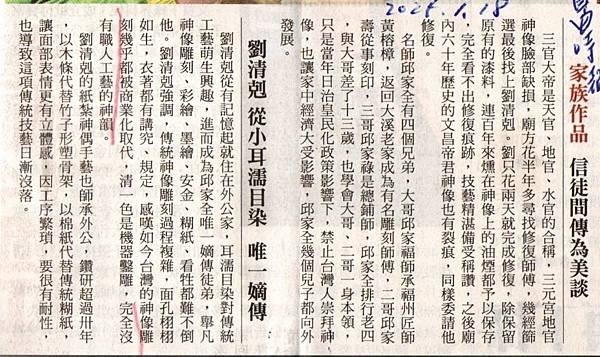 家族作品 信徒間傳為美談
三官大帝是天官、地官、水官的合稱，三元宮地官
神像臉部缺損，廟方花半年多尋找修復師傅，幾經篩
選最後找上劉清剋。劉只花兩天就完成修復，除保留
原有的漆料，連百年來燻在神像上的油煙都予以保存
，完全看不出修復痕跡，技藝精湛備受稱讚，之後廟
內六十年歷史的文昌帝君神像也有裂痕，同樣委請他
修復。
名師邱家全有四個兄弟，大哥邱家福師承福州匠師
黃榕樟，返回大溪老家成為有名雕刻師傅，二哥邱家
壽從事刻印，三哥邱家祿是總鋪師，邱家全排行老四
，與大哥差了十三歲，也學會大哥、二哥一身本領，
只是當年日治皇民化政策影響下，禁止台灣人崇拜神
像，也讓家中經濟大受影響，邱家全幾個兒子都向外
發展。
劉清剋 從小耳濡目染 唯一嫡傳
劉清剋從有記憶起就住在外公家，耳濡目染對傳統
工藝萌生興趣，進而成為邱家全唯一嫡傳徒弟，舉凡
神像雕刻、彩繪、墨繪、安金、糊紙、看牲都難不倒
他。劉清剋強調，傳統神像雕刻過程複雜，面孔栩栩
如生，衣著都有講究、規定，感嘆如今台灣的神像雕
刻幾乎都被商業化取代，清一色是機器鑿雕，完全沒
有職人工藝的神韻。
劉清剋的紙紮神偶手藝也師承外公，鑽研超過卅年
，以木條代替竹子形塑骨架，以棉紙代替傳統糊紙，
讓面部表情更有立體感，因工序繁瑣，要很有耐性，
也導致這項傳統技藝日漸沒落。